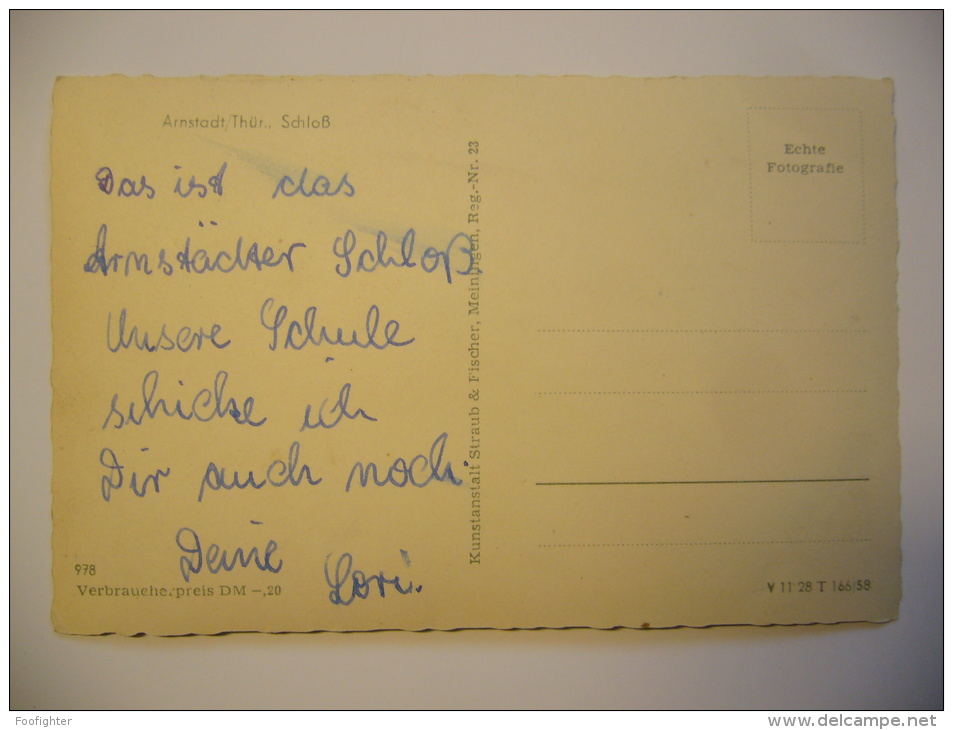 Arnstadt/Thür., Schloß
Das ist das
Arnstädter Schloß,
Unsere Schule
schicke ich
Dir auch noch.
Deine
Lori.
978
Verbraucherpreis DM –,20
Kunstanstalt Straub & Fischer, Meiningen, Reg.-Nr. 23
Echte
Fotografie
V 11 28 T 166/58
Foofighter
www.delcampe.net